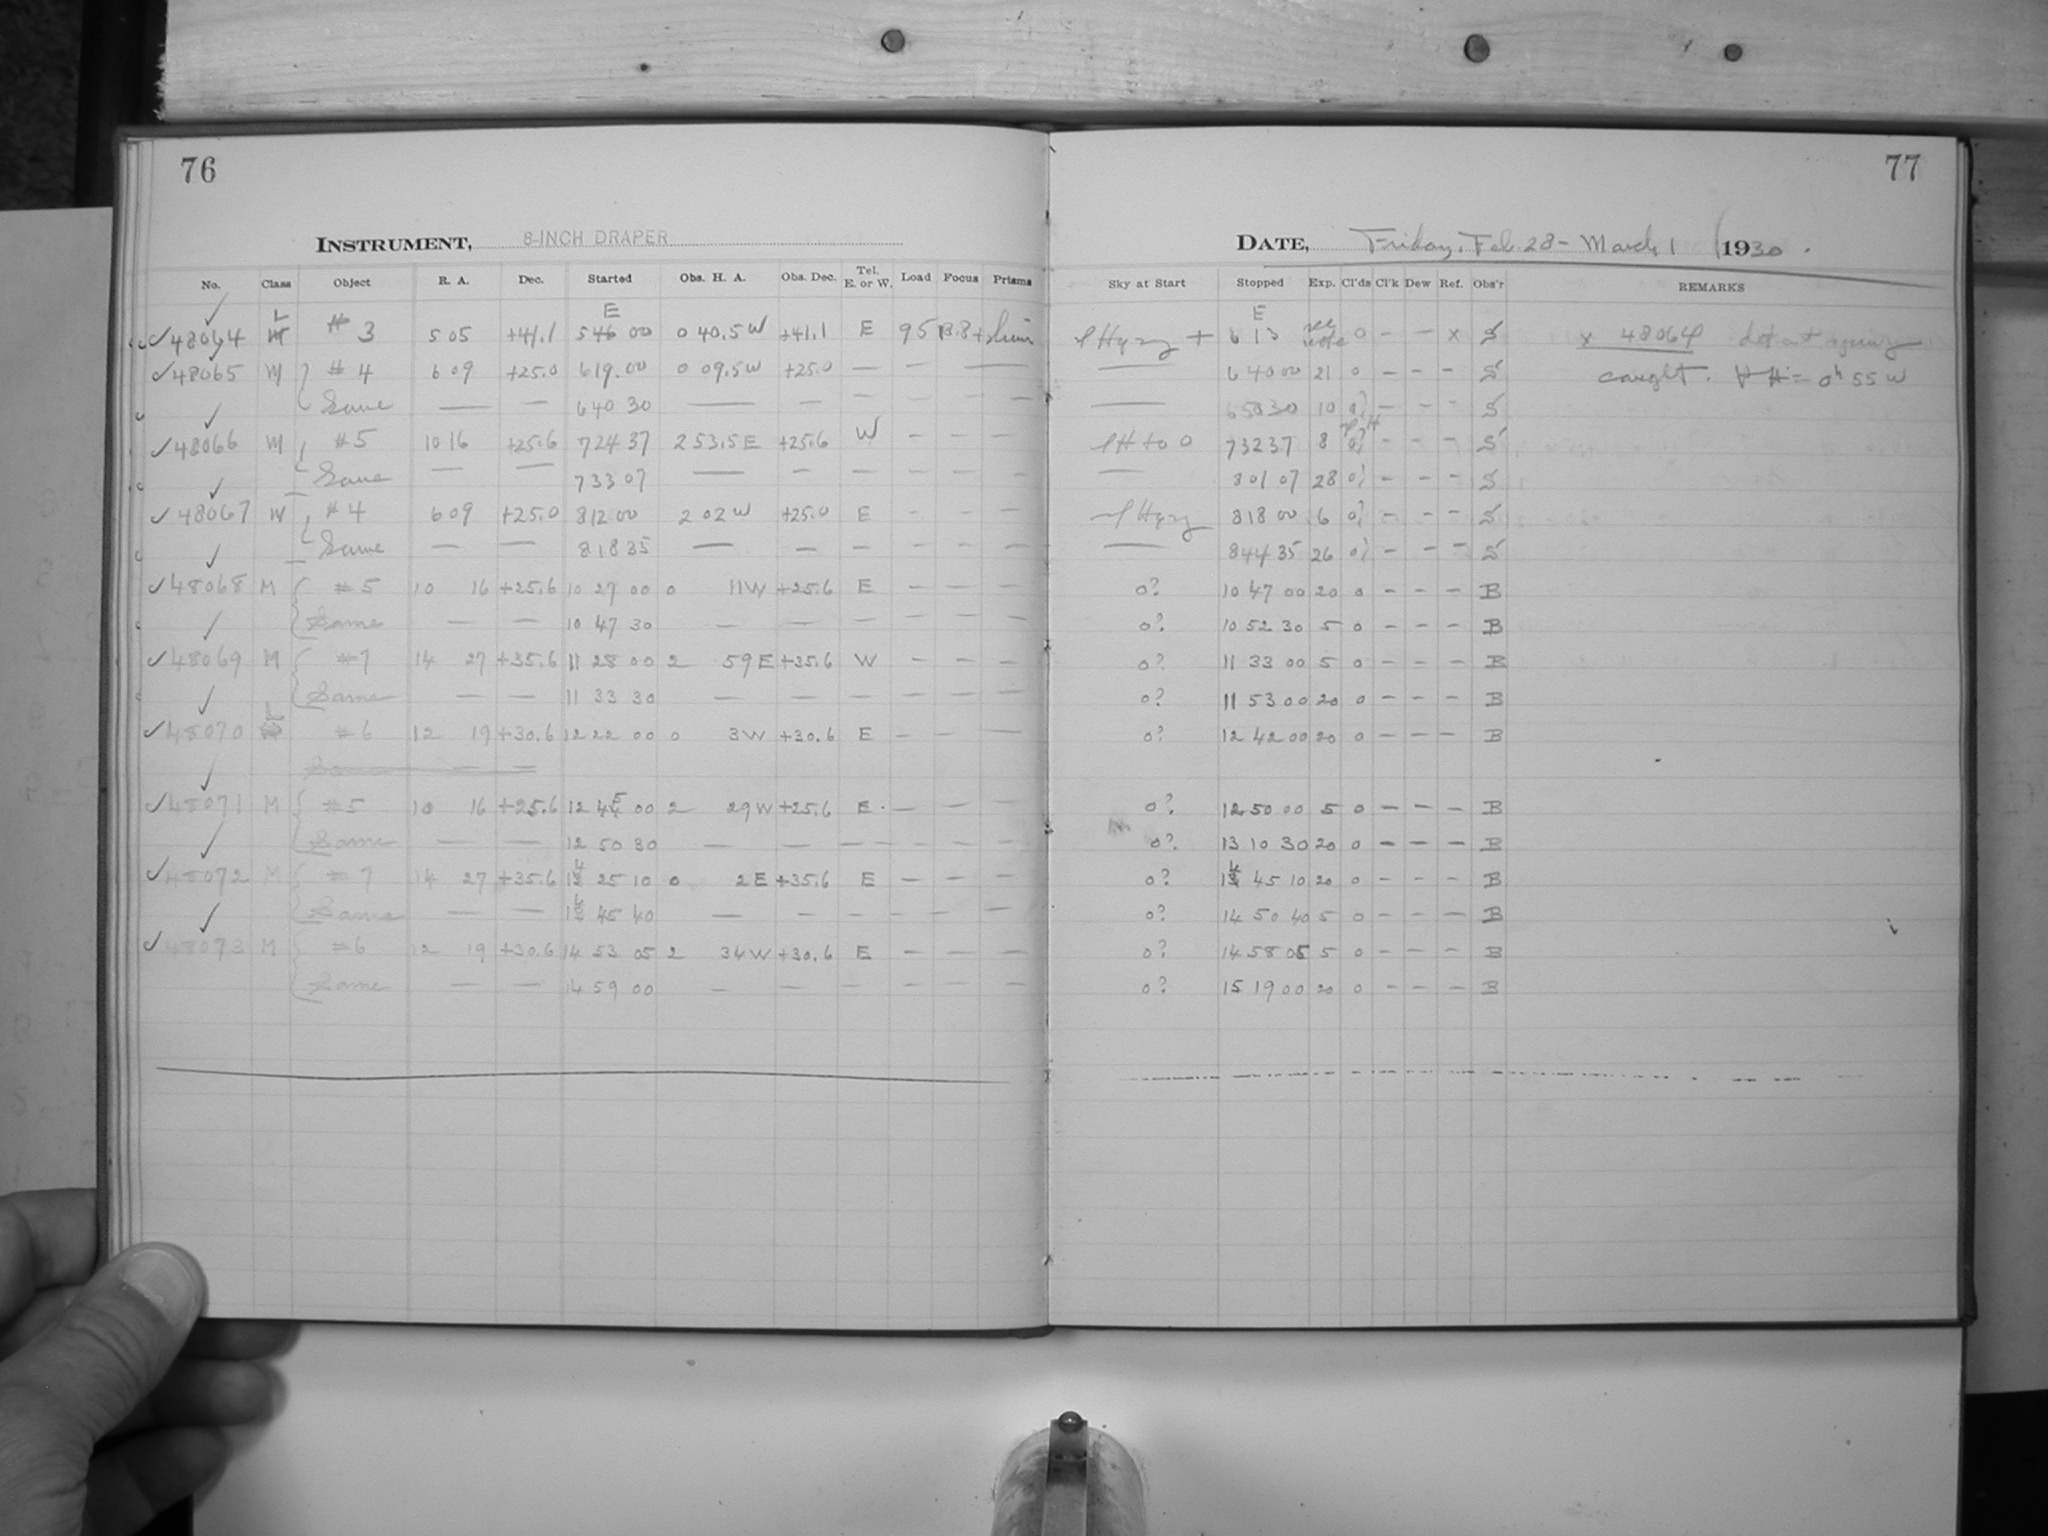 76
INSTRUMENT, 8-INCH DRAPER
No. Class Object R. A. Dec. Started Obs. H. A. Obs. Dec. Tel. E. or W. Load Focus Prisms
E
✓48064 L # 3 5 05 +41.1 546 00 0 40.5 W +41.1 E 95
✓48065 M #4 6 09 +25.0 619.00 0 09.5 W +25.0 — — — —
Same — — 640 30 — — — — — —
✓48066 M #5 10 16 +25.6 724 37 2 53.5 E +25.6 W — — —
Same — — 733 07 — — — — — —
✓48067 M #4 6 09 +25.0 812 00 2 02 W +25.0 E — — —
Same — — 818 35 — — — — — —
✓48068 M #5 10 16 +25.6 10 27 00 0 11 W +25.6 E — — —
Same — — 10 47 30 — — — — — —
✓48069 M #7 14 27 +35.6 11 28 00 2 59 E +35.6 W — — —
Same — — 11 33 30 — — — — — —
✓48070 L #6 12 19 +30.6 12 22 00 0 3 W +30.6 E — — —
Same — —
✓48071 M #5 10 16 +25.6 12 45 00 2 29 W +25.6 E — — —
Same — — 12 50 30 — — — — — —
✓48072 M #7 14 27 +35.6 14 25 10 0 2 E +35.6 E — — —
Same — — 14 45 40 — — — — — —
✓48073 M #6 12 19 +30.6 14 53 05 2 34 W +30.6 E — — —
Same — — 14 59 00 — — — — — —
77
DATE, Friday, Feb. 28 – March 1 1930.
Sky at Start Stopped Exp. Cl'ds Cl'k Dew Ref. Obs'r REMARKS
E
Hazy + 6 13 see note 0 — — x S x 48064
— 640 00 21 0 — — — S caught. H = 0h 55 W
— 650 30 10 0? — — — S
H to 0 732 37 8 0? — — — S
— 801 07 28 0? — — — S
Hazy 818 00 6 0? — — — S
— 844 35 26 0? — — — S
0? 10 47 00 20 0 — — — B
0? 10 52 30 5 0 — — — B
0? 11 33 00 5 0 — — — B
0? 11 53 00 20 0 — — — B
0? 12 42 00 20 0 — — — B
0? 12 50 00 5 0 — — — B
0? 13 10 30 20 0 — — — B
0? 14 45 10 20 0 — — — B
0? 14 50 40 5 0 — — — B
0? 14 58 05 5 0 — — — B
0? 15 19 00 20 0 — — — B